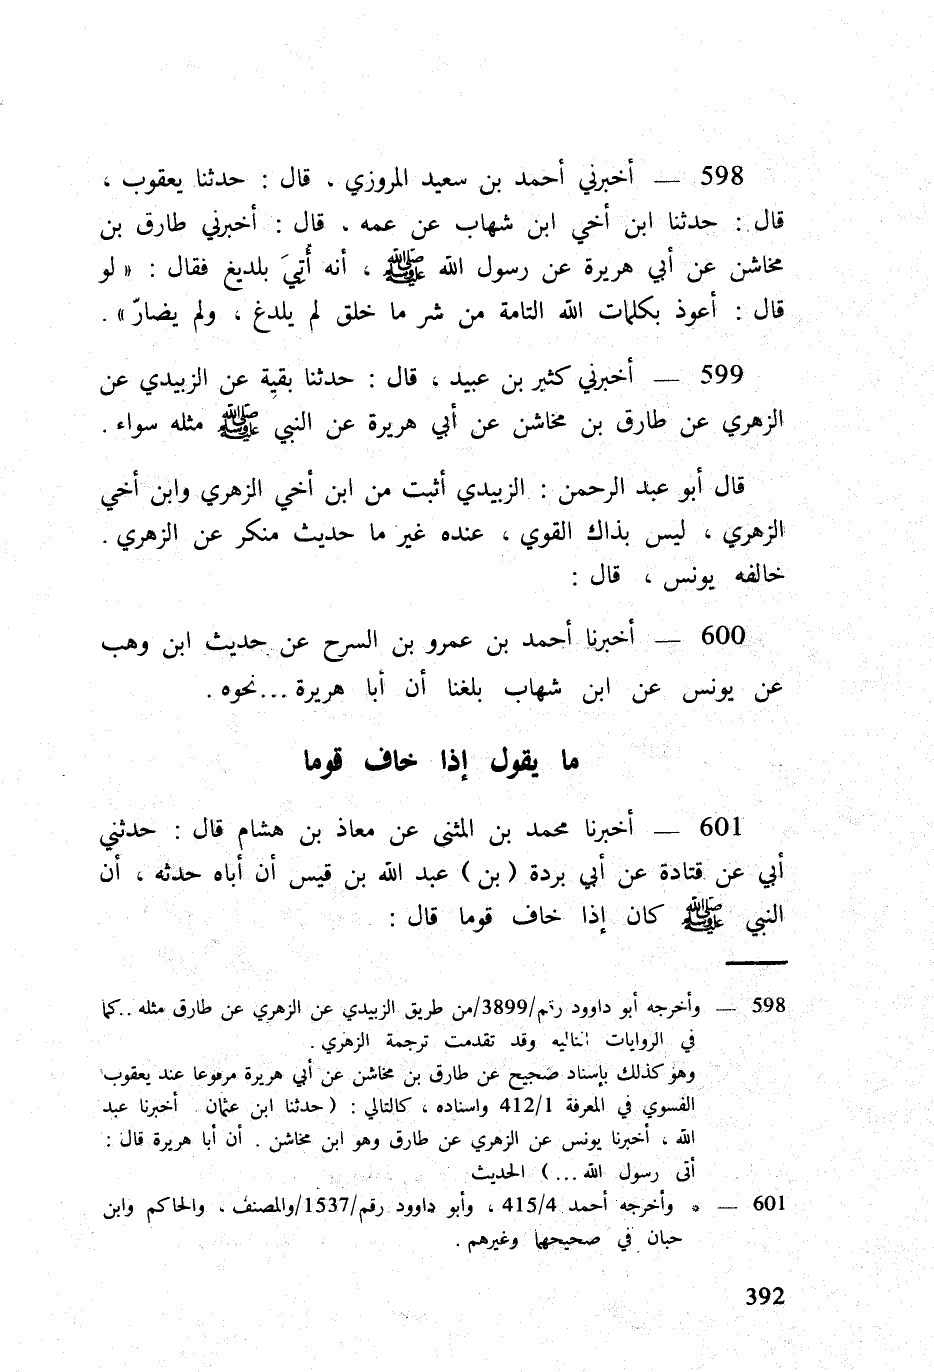 598 — أخبرني أحمد بن سعيد المروزي . قال : حدثنا يعقوب ،
قال : حدثنا ابن أخي ابن شهاب عن عمه . قال : أخبرني طارق بن
مخاشن عن أبي هريرة عن رسول الله ﷺ ، أنه أُتِيَ بلديغ فقال : « لو
قال : أعوذ بكلمات الله التامة من شر ما خلق لم يلدغ ، ولم يضارّ » .
599 — أخبرني كثير بن عبيد ، قال : حدثنا بقية عن الزبيدي عن
الزهري عن طارق بن مخاشن عن أبي هريرة عن النبي ﷺ مثله سواء .
قال أبو عبد الرحمن : الزبيدي أثبت من ابن أخي الزهري وابن أخي
الزهري ، ليس بذاك القوي ، عنده غير ما حديث منكر عن الزهري .
خالفه يونس ، قال :
600 — أخبرنا أحمد بن عمرو بن السرح عن حديث ابن وهب
عن يونس عن ابن شهاب بلغنا أن أبا هريرة ... نحوه .
ما يقول إذا خاف قوما
601 — أخبرنا محمد بن المثنى عن معاذ بن هشام قال : حدثني
أبي عن قتادة عن أبي بردة ( بن ) عبد الله بن قيس أن أباه حدثه ، أن
النبي ﷺ كان إذا خاف قوما قال :
598 — وأخرجه أبو داوود رقم/3899/من طريق الزبيدي عن الزهري عن طارق مثله .. كما
في الروايات التاليه وقد تقدمت ترجمة الزهري .
وهو كذلك بإسناد صحيح عن طارق بن مخاشن عن أبي هريرة مرفوعا عند يعقوب
الفسوي في المعرفة 412/1 واسناده ، كالتالي : ( حدثنا ابن عثمان أخبرنا عبد
الله ، أخبرنا يونس عن الزهري عن طارق وهو ابن مخاشن . أن أبا هريرة قال :
أتى رسول الله ... ) الحديث
601 — * وأخرجه أحمد 415/4 ، وأبو داوود رقم/1537/والمصنف ، والحاكم وابن
حبان في صحيحهما وغيرهم .
392